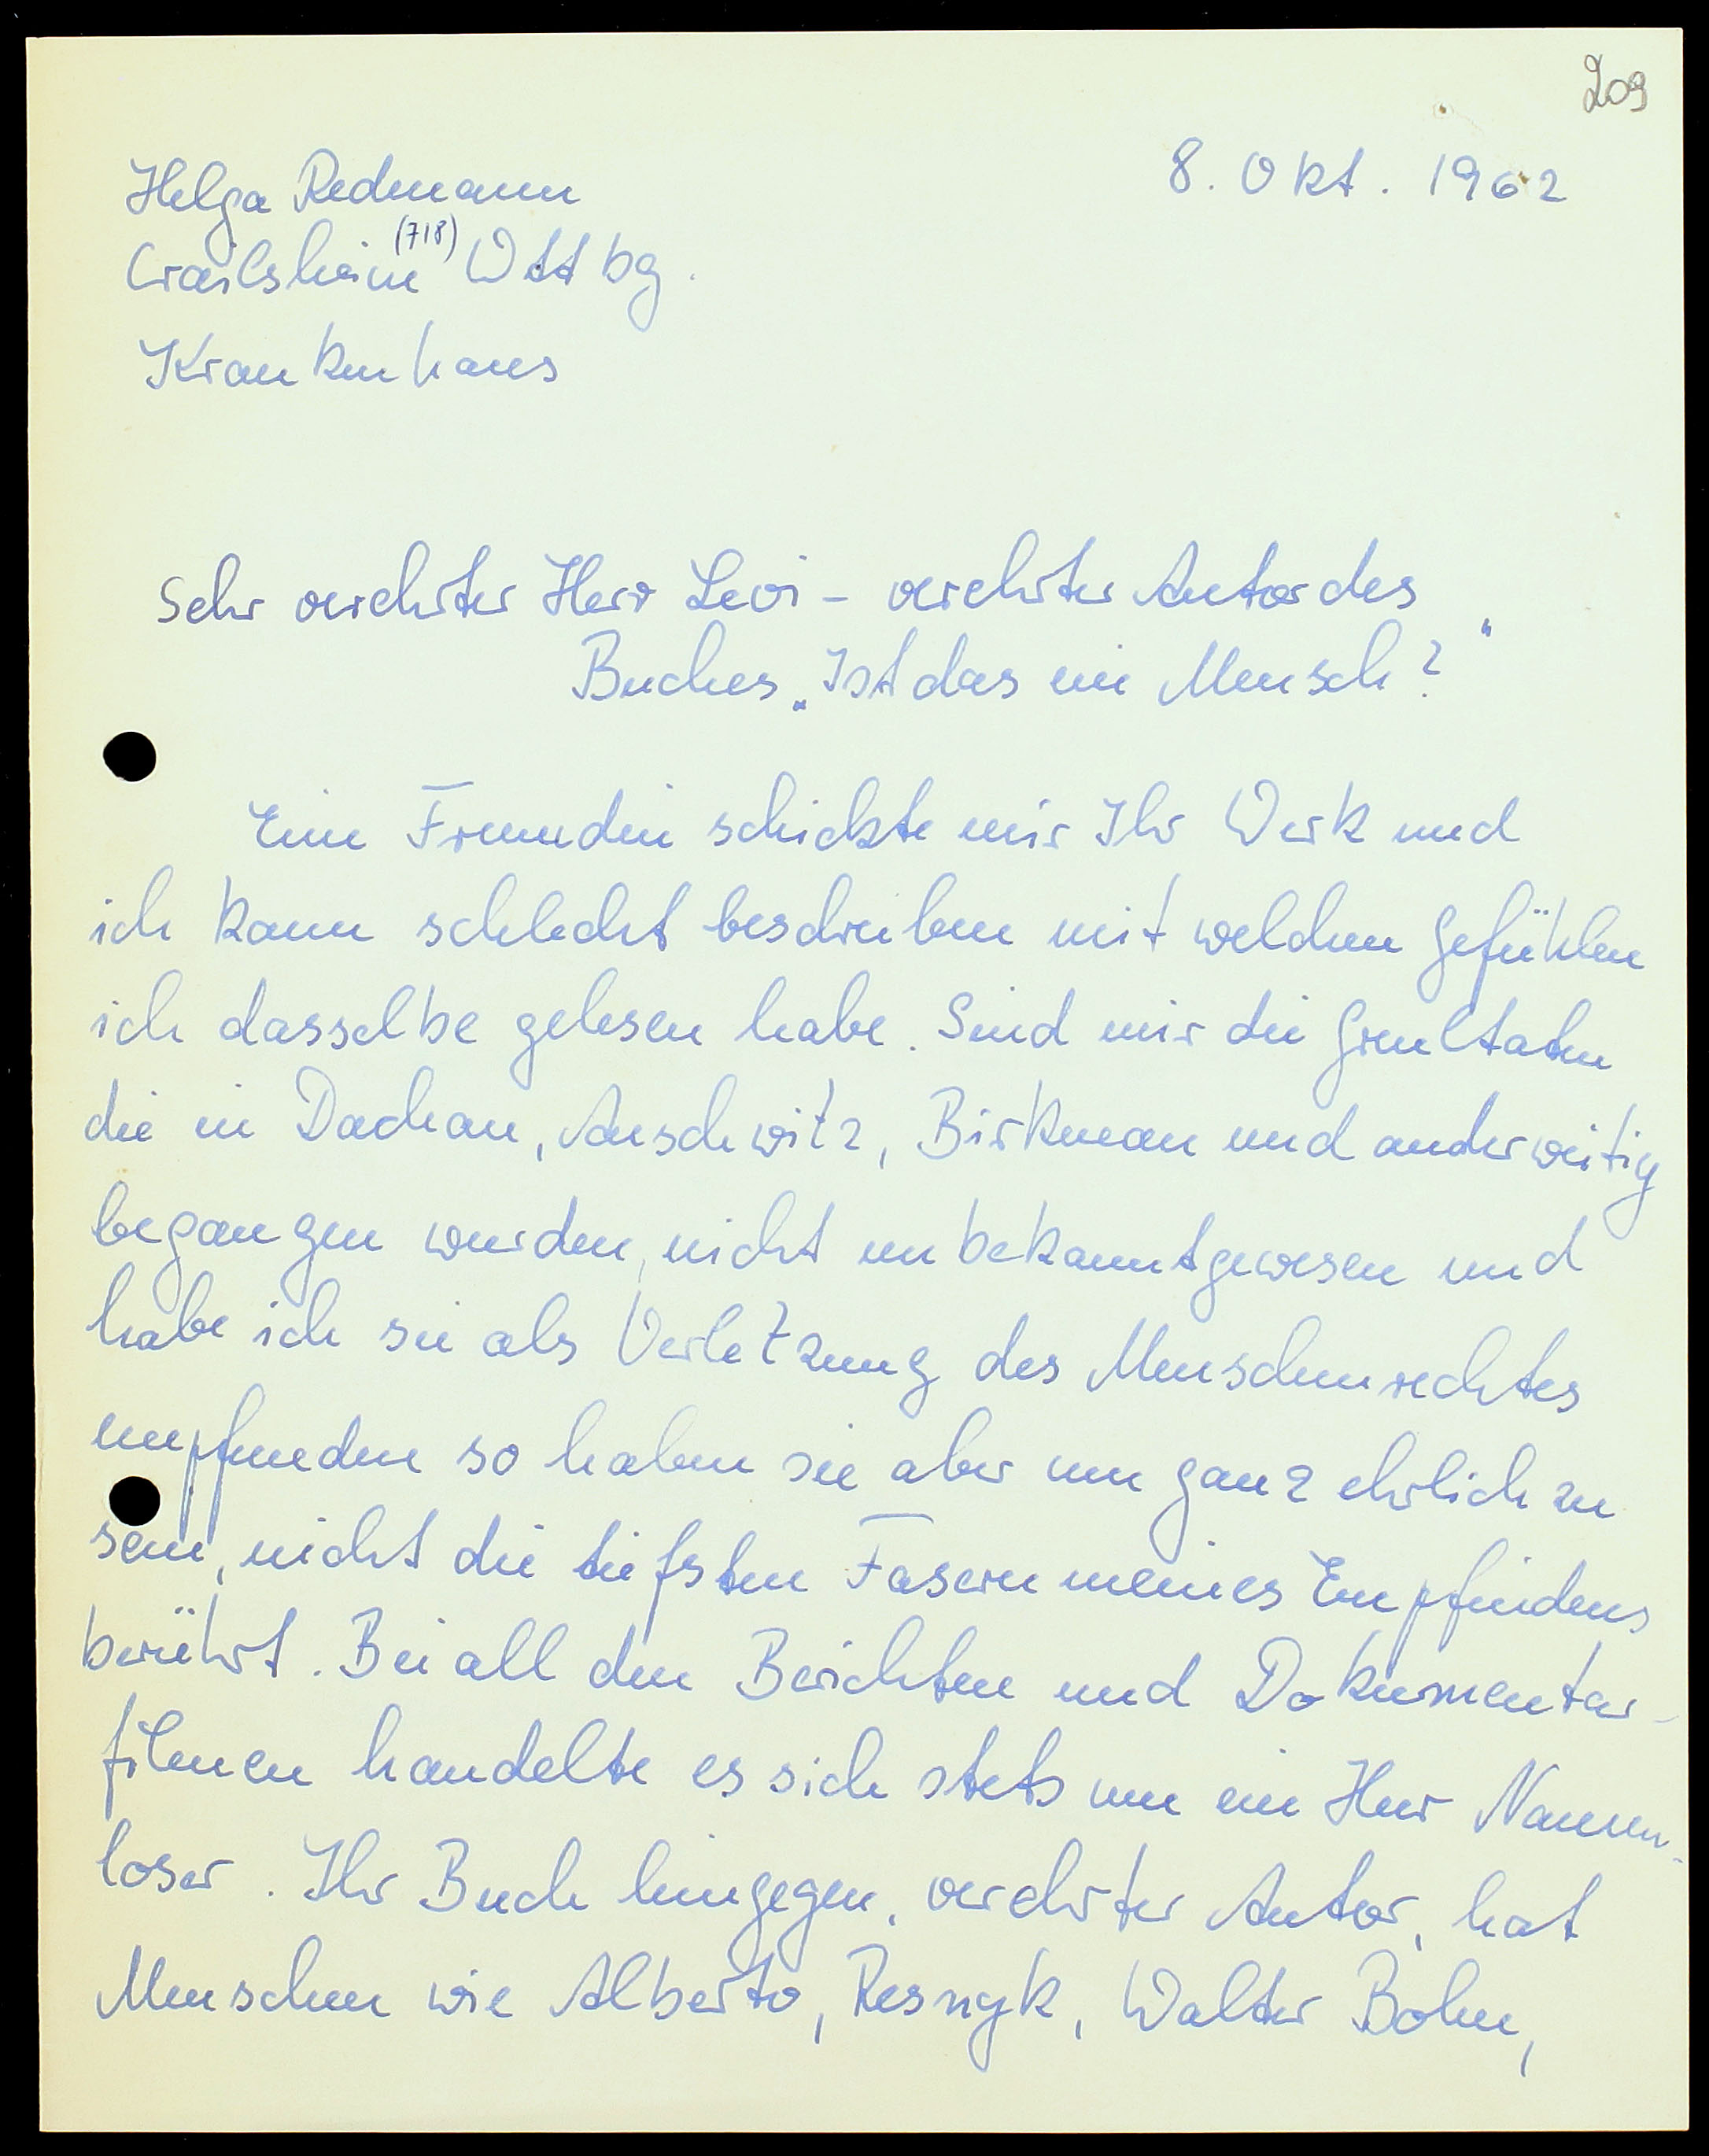 209
Helga Redmann
8. Okt. 1962
Crailsheim (718) Wttbg.
Krankenhaus
Sehr verehrter Herr Levi – verehrter Autor des
Buches „Ist das ein Mensch?"
Eine Freundin schickte mir Ihr Werk und
ich kann schlecht beschreiben mit welchen Gefühlen
ich dasselbe gelesen habe. Sind mir die Greultaten
die in Dachau, Auschwitz, Birkenau und anderweitig
begangen wurden, nicht unbekannt gewesen und
habe ich sie als Verletzung des Menschenrechtes
empfunden so haben sie aber um ganz ehrlich zu
sein, nicht die tiefsten Fasern meines Empfindens
berührt. Bei all den Berichten und Dokumentar-
filmen handelte es sich stets um ein Herr Namen-
loser. Ihr Buch hingegen, verehrter Autor, hat
Menschen wie Alberto, Resnyk, Walter Bohn,